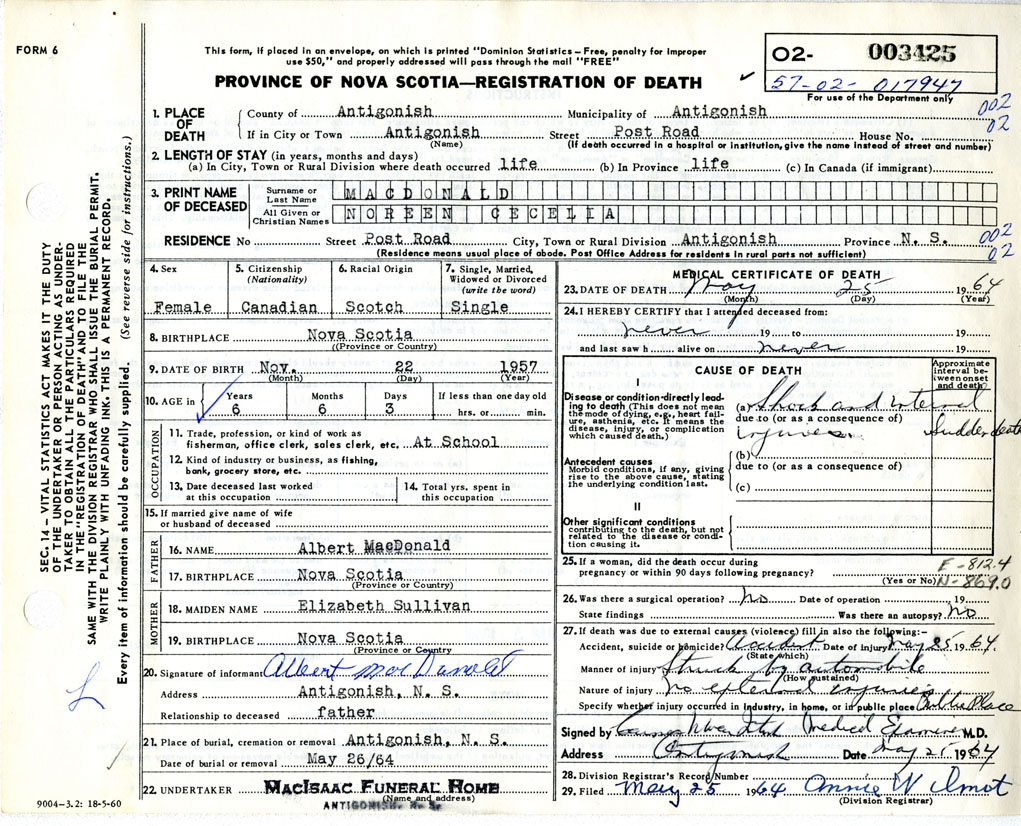 FORM 6
This form, if placed in an envelope, on which is printed "Dominion Statistics – Free, penalty for improper
use $50," and properly addressed will pass through the mail "FREE"
PROVINCE OF NOVA SCOTIA—REGISTRATION OF DEATH
02- 003425
57-02-017947
For use of the Department only
SEC. 14 – VITAL STATISTICS ACT MAKES IT THE DUTY
OF THE UNDERTAKER OR PERSON ACTING AS UNDER-
TAKER TO OBTAIN ALL THE PARTICULARS REQUIRED
IN THE "REGISTRATION OF DEATH" AND TO FILE THE
SAME WITH THE DIVISION REGISTRAR WHO SHALL ISSUE THE BURIAL PERMIT.
WRITE PLAINLY WITH UNFADING INK. THIS IS A PERMANENT RECORD.
Every item of information should be carefully supplied. (See reverse side for instructions.)
1. PLACE OF DEATH
County of Antigonish Municipality of Antigonish 002
If in City or Town Antigonish Street Post Road House No. 02
(Name) (If death occurred in a hospital or institution, give the name instead of street and number)
2. LENGTH OF STAY (in years, months and days)
(a) In City, Town or Rural Division where death occurred life (b) In Province life (c) In Canada (if immigrant)
3. PRINT NAME OF DECEASED
Surname or Last Name MACDONALD
All Given or Christian Names NOREEN CECELIA
RESIDENCE No Street Post Road City, Town or Rural Division Antigonish Province N. S. 002
(Residence means usual place of abode. Post Office Address for residents in rural parts not sufficient) 02
4. Sex Female
5. Citizenship (Nationality) Canadian
6. Racial Origin Scotch
7. Single, Married, Widowed or Divorced (write the word) Single
8. BIRTHPLACE Nova Scotia
((Province or Country)
9. DATE OF BIRTH Nov. 22 1957
(Month) (Day) (Year)
10. AGE in Years 6 Months 6 Days 3 If less than one day old hrs. or min.
OCCUPATION
11. Trade, profession, or kind of work as
fisherman, office clerk, sales clerk, etc. At School
12. Kind of industry or business, as fishing,
bank, grocery store, etc.
13. Date deceased last worked
at this occupation
14. Total yrs. spent in
this occupation
15. If married give name of wife
or husband of deceased
FATHER
16. NAME Albert MacDonald
17. BIRTHPLACE Nova Scotia
(Province or Country)
MOTHER
18. MAIDEN NAME Elizabeth Sullivan
19. BIRTHPLACE Nova Scotia
(Province or Country
20. Signature of informant Albert MacDonald
Address Antigonish, N. S.
Relationship to deceased father
21. Place of burial, cremation or removal Antigonish, N. S.
Date of burial or removal May 26/64
22. UNDERTAKER MACISAAC FUNERAL HOME
(Name and address)
ANTIGONISH, N. S.
9004-3.2: 18-5-60
MEDICAL CERTIFICATE OF DEATH
23. DATE OF DEATH May 25 1964
(Month) (Day) (Year)
24. I HEREBY CERTIFY that I attended deceased from:
never 19 to 19
and last saw h alive on never 19
CAUSE OF DEATH
Approximate interval between onset and death
I
Disease or condition directly lead-
ing to death (This does not mean
the mode of dying, e.g., heart fail-
ure, asthenia, etc. It means the
disease, injury, or complication
which caused death.)
(a) Shock and internal
due to (or as a consequence of)
injuries. Sudden death
Antecedent causes
Morbid conditions, if any, giving
rise to the above cause, stating
the underlying condition last.
(b)
due to (or as a consequence of)
(c)
II
Other significant conditions
contributing to the death, but not
related to the disease or condi-
tion causing it.
25. If a woman, did the death occur during
pregnancy or within 90 days following pregnancy?
(Yes or No)
E-812.4
N-869.0
26. Was there a surgical operation? No Date of operation 19
State findings Was there an autopsy? No
27. If death was due to external causes (violence) fill in also the following:-
Accident, suicide or homicide? Accident Date of injury May 25 1964.
(State which)
Manner of injury Struck by automobile
(How sustained)
Nature of injury No external injuries
Specify whether injury occurred in industry, in home, or in public place Public Place
Signed by Medical Examiner M.D.
Address Antigonish Date May 25 1964
28. Division Registrar's Record Number
29. Filed May 25 1964 Annie W Wilmot
(Division Registrar)